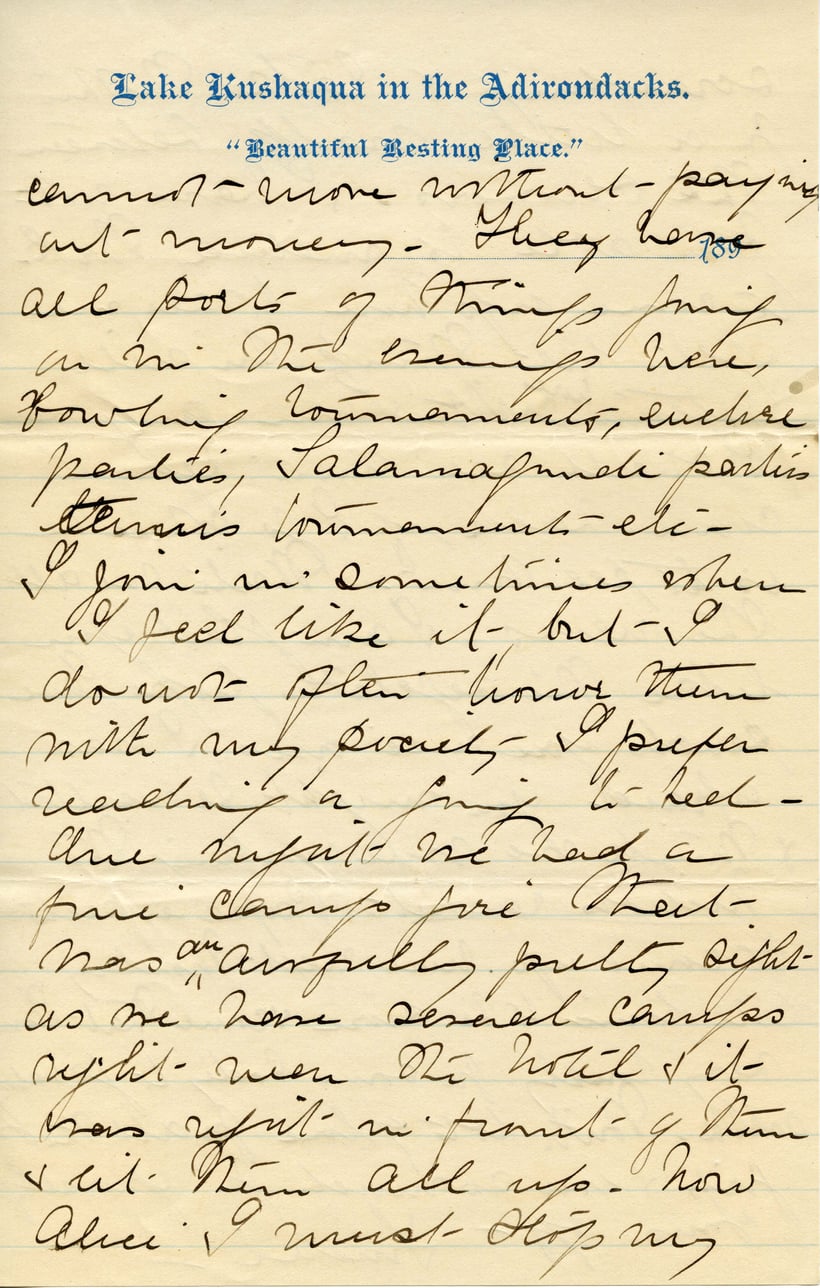 Lake Kushaqua in the Adirondacks.
"Beautiful Resting Place."
cannot - move without - paying
out money - They have
189
all sorts of things going
on in the evenings here,
bowling tournaments, euchre
parties, Salamagundi parties
tennis tournaments etc -
I join in sometimes when
I feel like it, but - I
do not often honor them
with my society I prefer
reading or going to bed -
One night we had a
fine camp fire that
was an awfully pretty sight
as we have several camps
right near the hotel & it
was right in front of them
& lit them all up - Now
Alice I must stop my